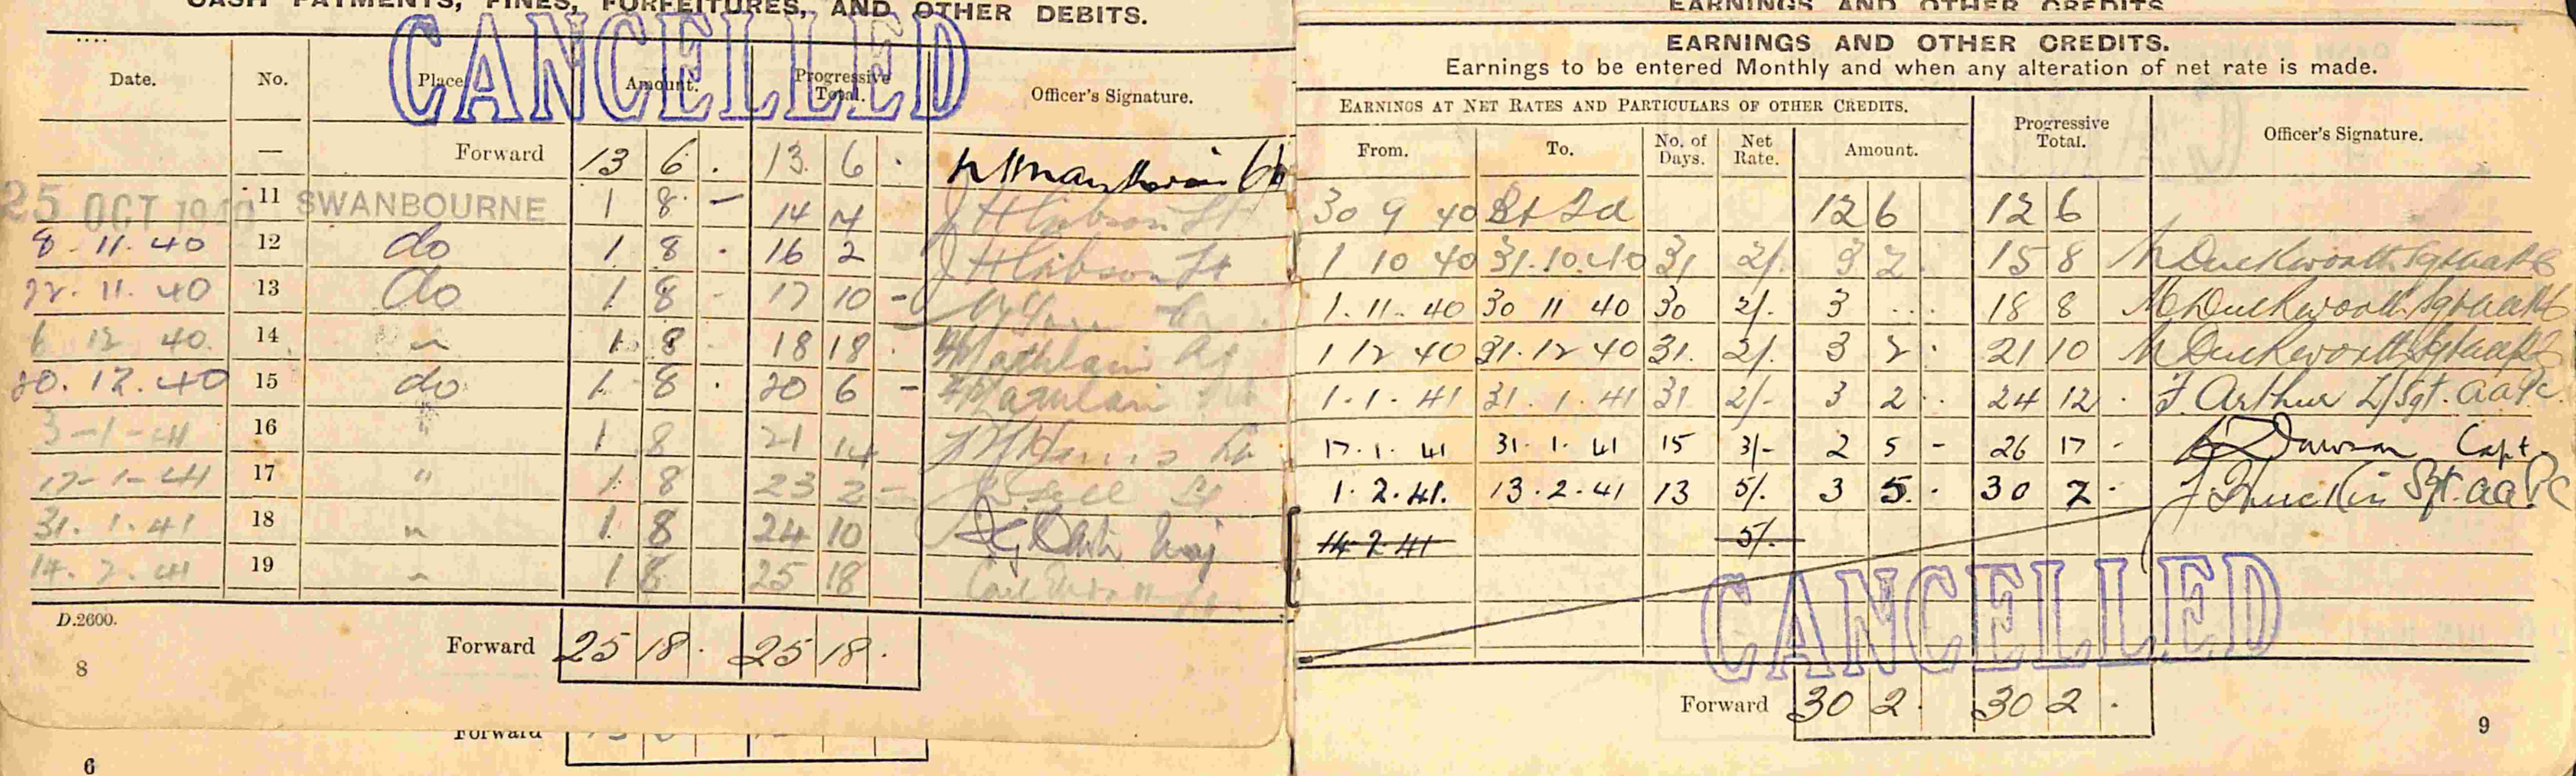 CASH PAYMENTS, FINES, FORFEITURES, AND OTHER DEBITS.
CANCELLED
Date. No. Place Amount. Progressive Total. Officer's Signature.
— Forward 13 6 . 13 6 .
25 OCT 1940 11 SWANBOURNE 1 8 — 14 14 J H Gibson Lt
8 . 11 . 40 12 do 1 8 . 16 2 J H Gibson Lt
22 . 11 . 40 13 do 1 8 - 17 10 -
6 12 40 14 " 1 8 18 18 .
20 . 12 . 40 15 do 1 8 . 20 6 -
3 - 1 - 41 16 " 1 8 21 14
17 - 1 - 41 17 " 1 8 23 2 -
31 . 1 . 41 18 " 1 8 24 10
14 . 2 . 41 19 " 1 8 25 18
D.2600.
Forward 25 18 . 25 18 .
8
Forward
6
EARNINGS AND OTHER CREDITS
EARNINGS AND OTHER CREDITS.
Earnings to be entered Monthly and when any alteration of net rate is made.
EARNINGS AT NET RATES AND PARTICULARS OF OTHER CREDITS. Progressive Total. Officer's Signature.
From. To. No. of Days. Net Rate. Amount.
30 9 40 Bt Fd 12 6 12 6
1 10 40 31.10.40 31 2/. 3 2 . 15 8 M Duckworth Sgt AAPC
1 . 11 . 40 30 11 40 30 2/. 3 . . . 18 8 M Duckworth Sgt AAPC
1 12 40 31.12 40 31. 2/. 3 2 . 21 10 M Duckworth Sgt AAPC
1 . 1 . 41 31 . 1 . 41 31 2/- 3 2 . . 24 12 . F. Arthur L/Sgt. AAPC.
17 . 1 . 41 31 . 1 . 41 15 3/- 2 5 - 26 17 - Dawson Capt.
1 . 2 . 41. 13 . 2 . 41 13 5/. 3 5 . . 30 2 . Sgt. AAPC
14 2 41 5/.
CANCELLED
Forward 30 2 . 30 2 .
9